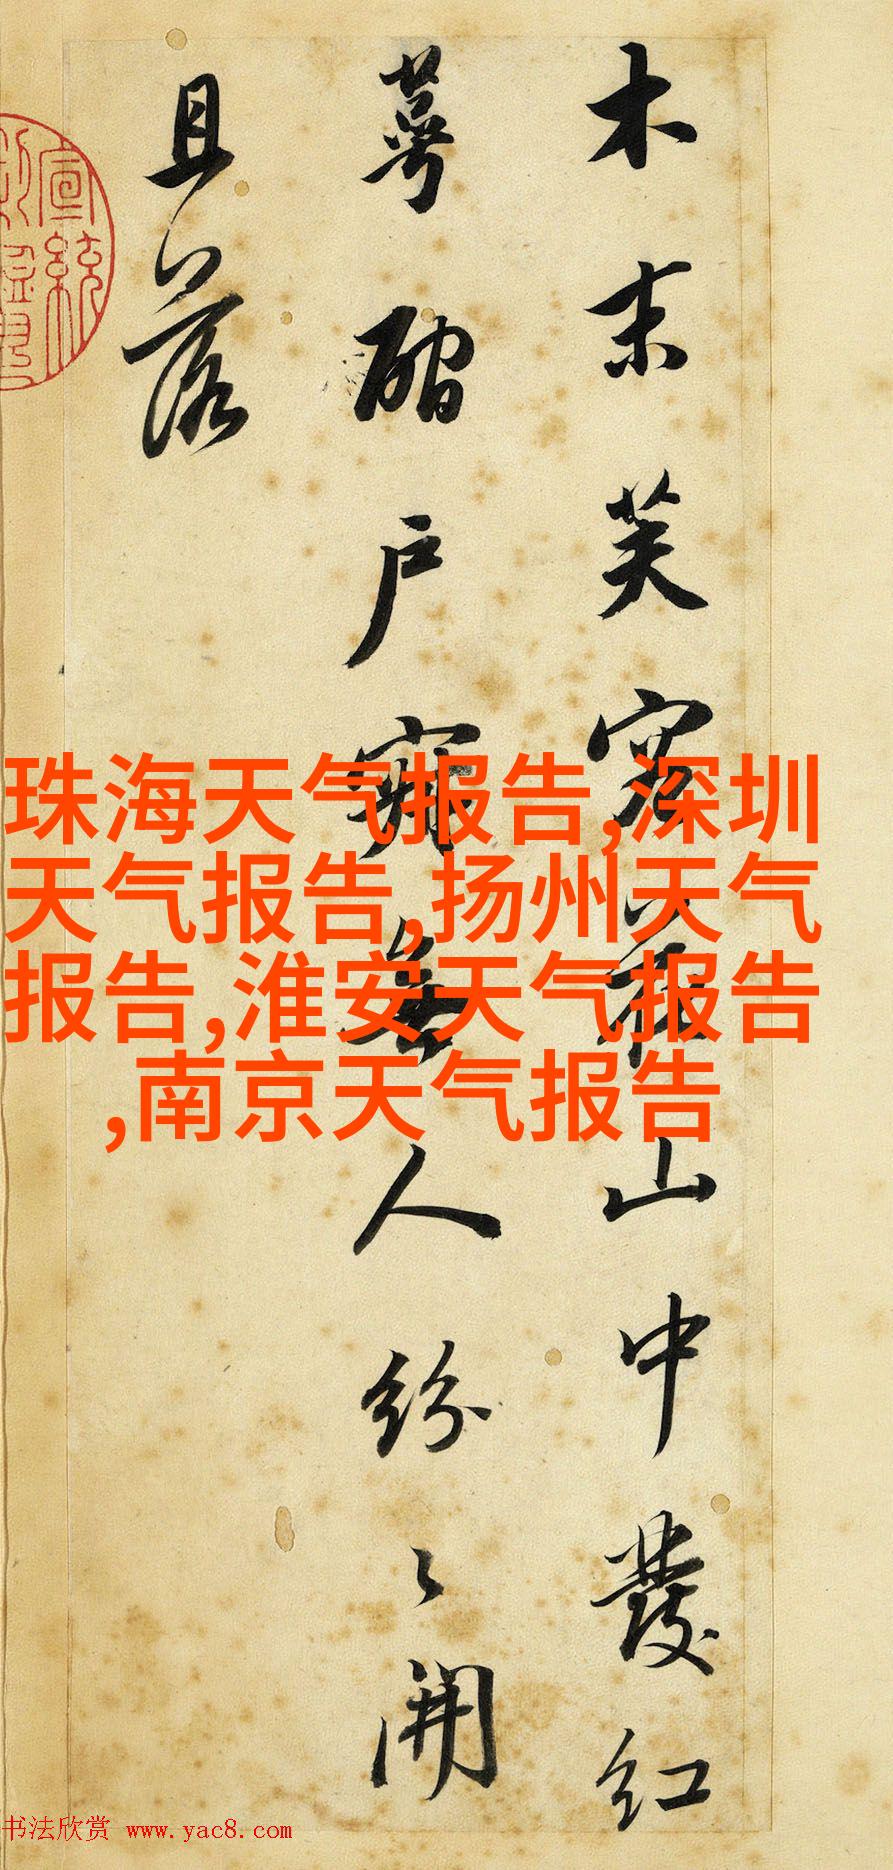 木末芙容花山中發紅
萼戶寂無人紛〻開
且落
宣統
珠海天气报告,深圳
天气报告,扬州天气
报告,淮安天气报告
,南京天气报告
书法欣赏 www.yac8.com